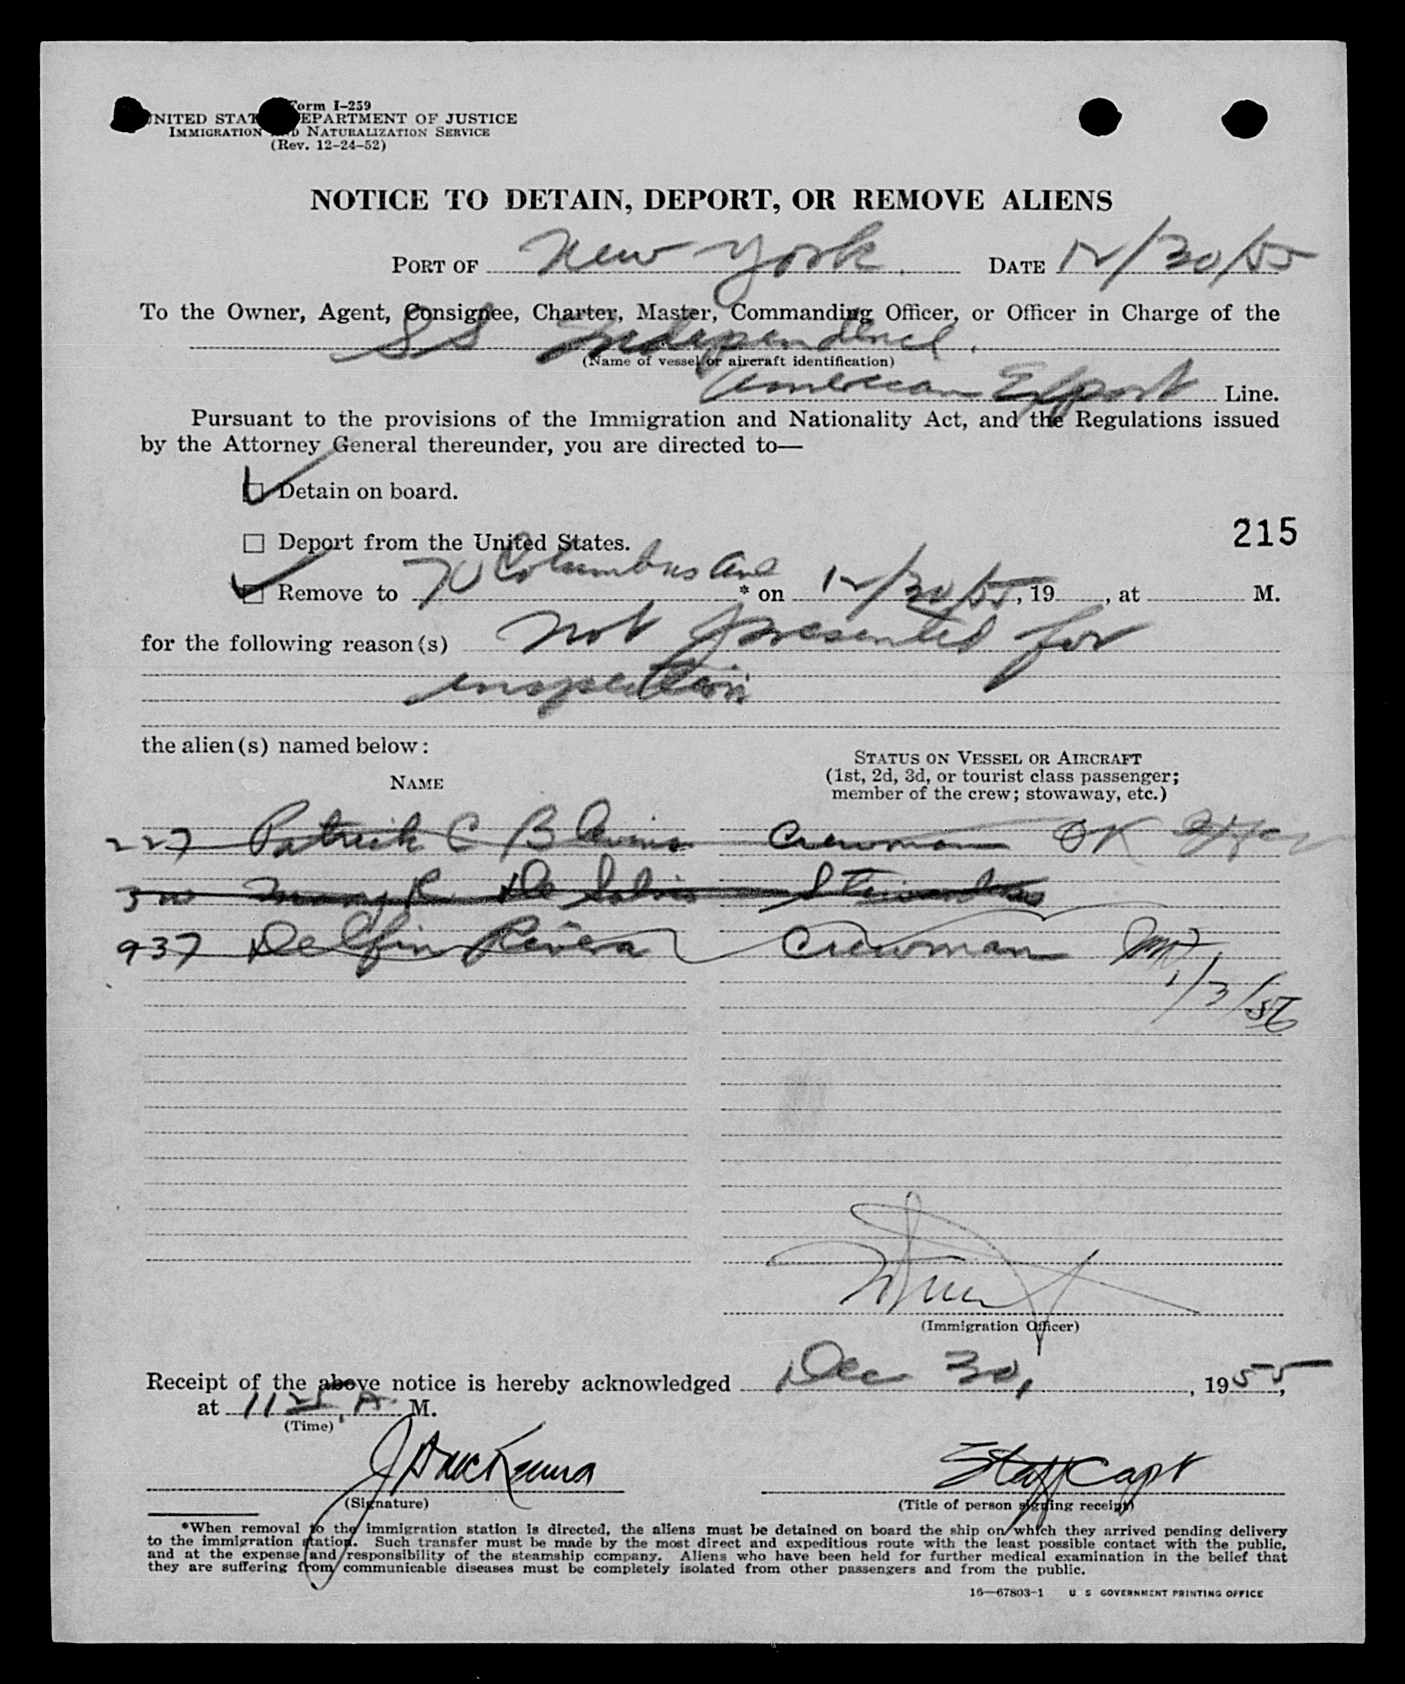 Form I-259
UNITED STATES DEPARTMENT OF JUSTICE
IMMIGRATION AND NATURALIZATION SERVICE
(Rev. 12-24-52)
NOTICE TO DETAIN, DEPORT, OR REMOVE ALIENS
PORT OF New York. DATE 12/30/55
To the Owner, Agent, Consignee, Charter, Master, Commanding Officer, or Officer in Charge of the
SS Independence.
(Name of vessel or aircraft identification)
American Export Line.
Pursuant to the provisions of the Immigration and Nationality Act, and the Regulations issued
by the Attorney General thereunder, you are directed to—
Detain on board.
215
Deport from the United States.
Remove to 70 Columbus Ave * on 12/30/55, 19 , at M.
for the following reason(s) Not presented for
inspection
the alien(s) named below:
STATUS ON VESSEL OR AIRCRAFT
NAME (1st, 2d, 3d, or tourist class passenger;
member of the crew; stowaway, etc.)
227 Patrick C Crewman OK
Mary R De Stewardess
937 Delfin Rivera Crewman
1/3/56
(Immigration Officer)
Receipt of the above notice is hereby acknowledged Dec 30, 1955,
at 11 A. M.
(Time)
Staff Capt
(Signature) (Title of person signing receipt)
*When removal to the immigration station is directed, the aliens must be detained on board the ship on which they arrived pending delivery
to the immigration station. Such transfer must be made by the most direct and expeditious route with the least possible contact with the public,
and at the expense and responsibility of the steamship company. Aliens who have been held for further medical examination in the belief that
they are suffering from communicable diseases must be completely isolated from other passengers and from the public.
16—67803-1 U S GOVERNMENT PRINTING OFFICE